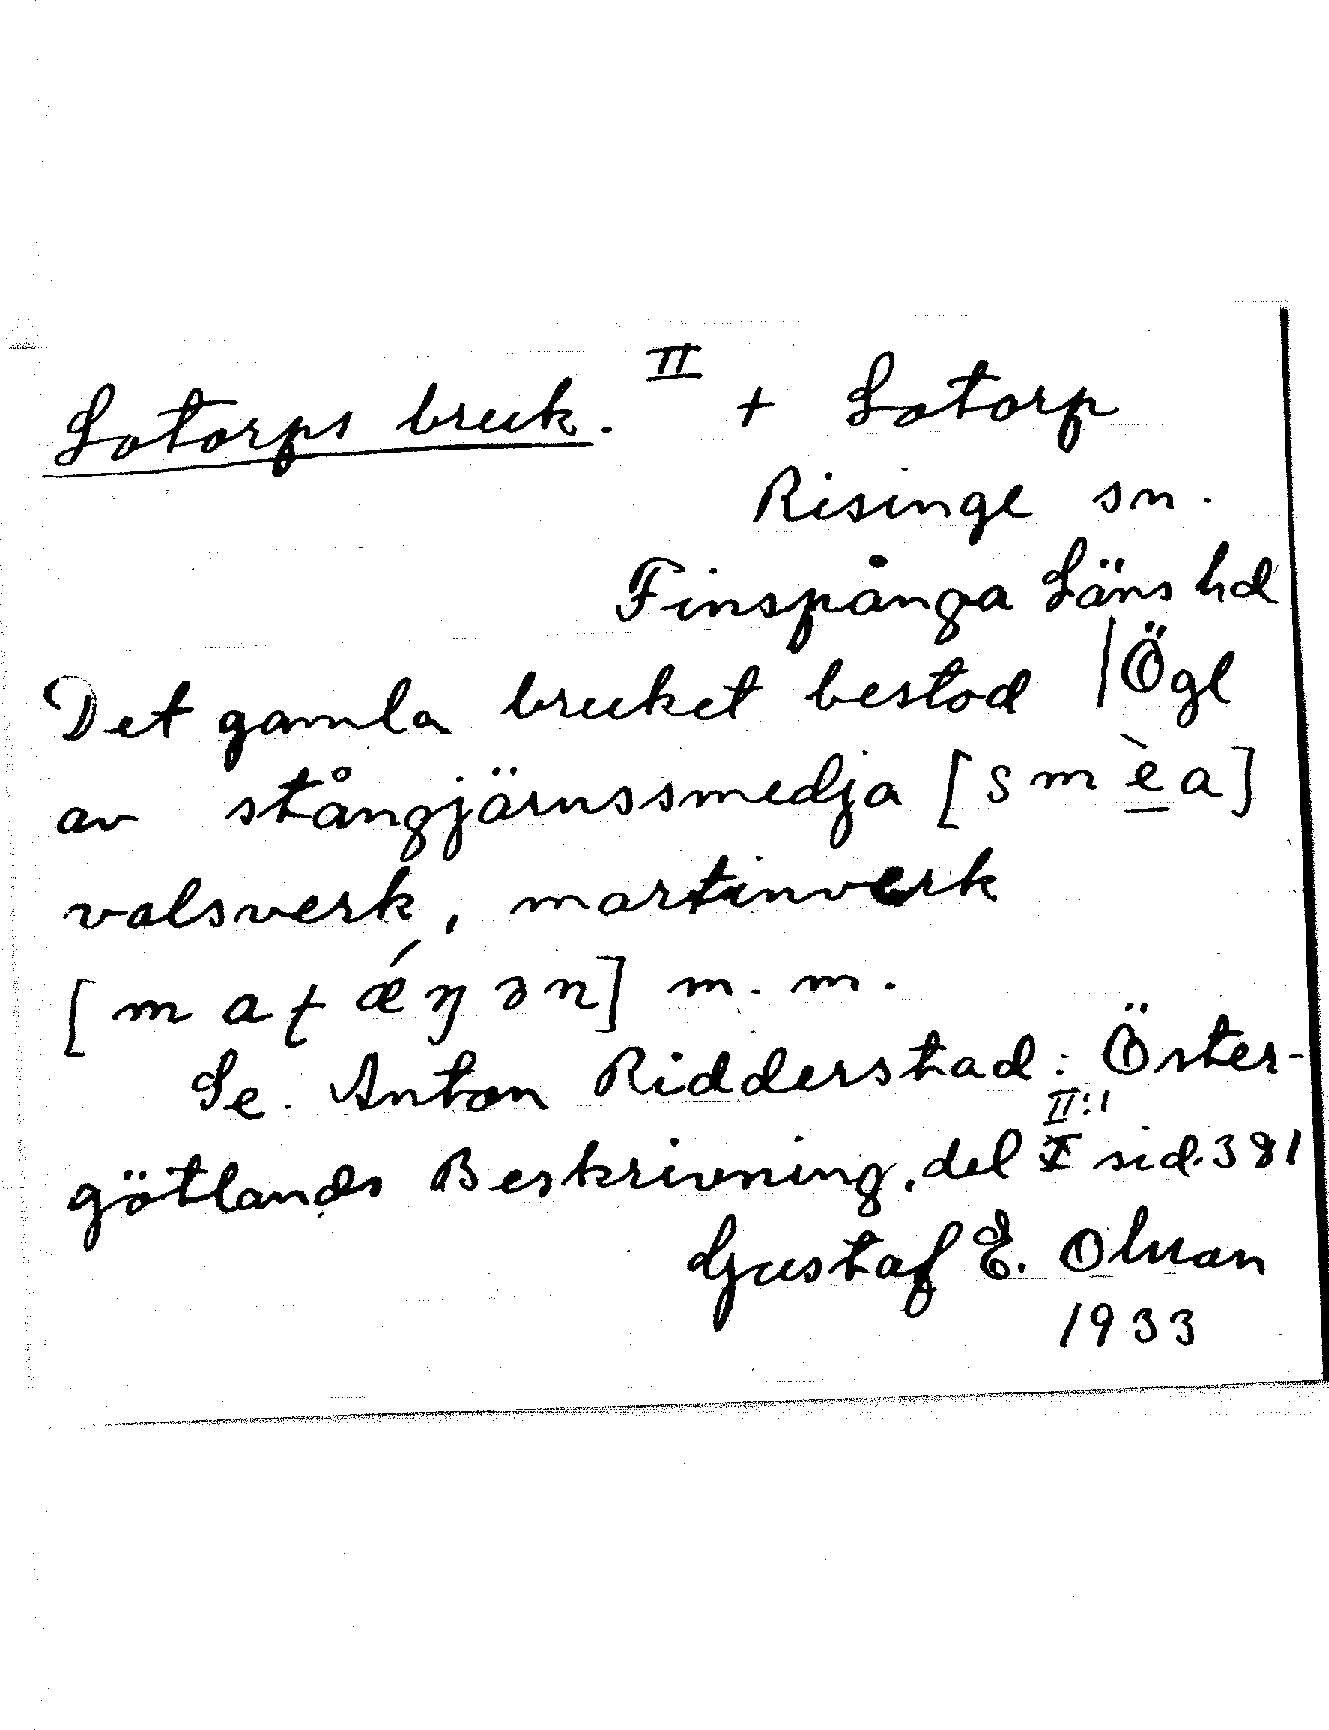 Lotorps bruk. II + Lotorp
Risinge sn.
Finspånga Läns hd
Det gamla bruket bestod / Ögl
av stångjärnssmedja [smèa]
valsverk, martinverk
[maʈǽŋən] m. m.
Se. Anton Ridderstad: Öster-
götlands Beskrivning, del II:1 sid. 381
Gustaf E. Olsson
1933